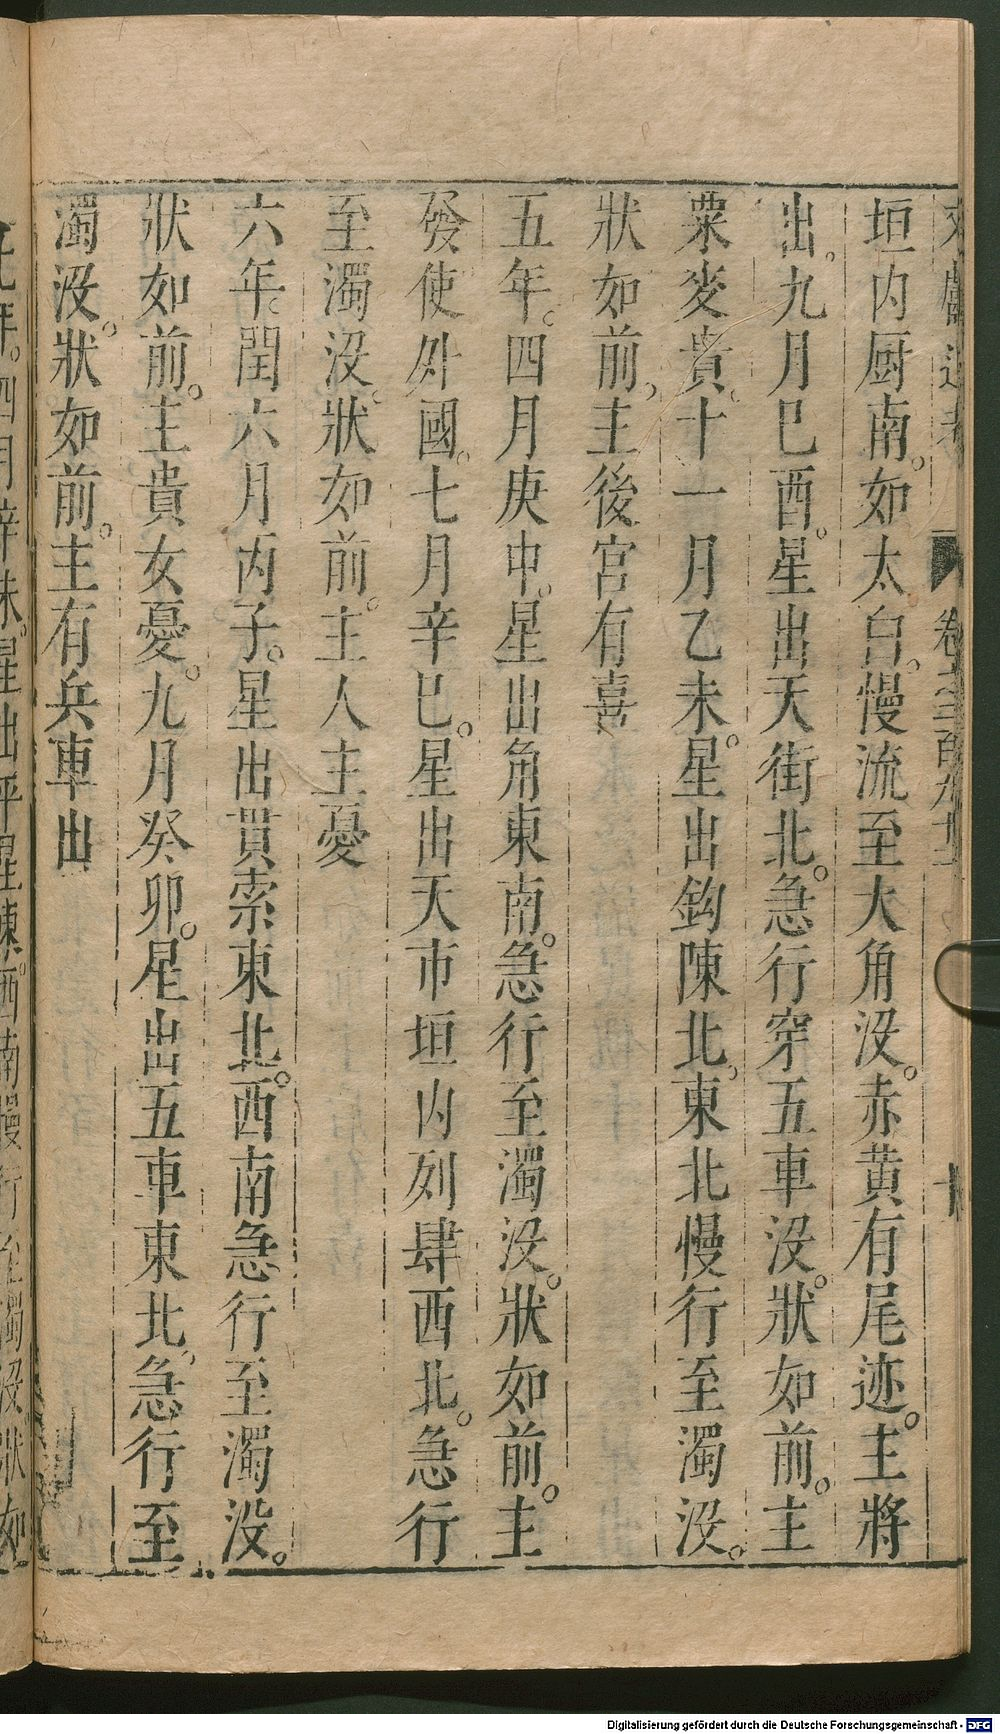 垣内厨南。如太白。慢流至大角没。赤黄有尾迹。主將
出。九月巳酉。星出天街北。急行穿五車没。狀如前。主
粟麥貴。十一月乙未。星出鈎陳北。東北慢行至濁没。
狀如前。主後宮有喜
五年。四月庚申。星出角東南。急行至濁没。狀如前。主
發使外國。七月辛巳。星出天市垣内列肆西北。急行
至濁没。狀如前。主人主憂
六年。閏六月丙子。星出貫索東北。西南急行至濁没。
狀如前。主貴女憂。九月癸卯。星出五車東北。急行至
濁没。狀如前。主有兵車出
年。四月辛未。星出平星東。西南慢行至濁没。狀如
Digitalisierung gefördert durch die Deutsche Forschungsgemeinschaft - DFG